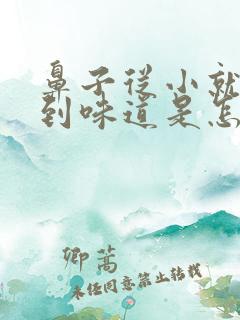 鼻子从小就
到味道是怎
卿蒿
未经同意禁止转载